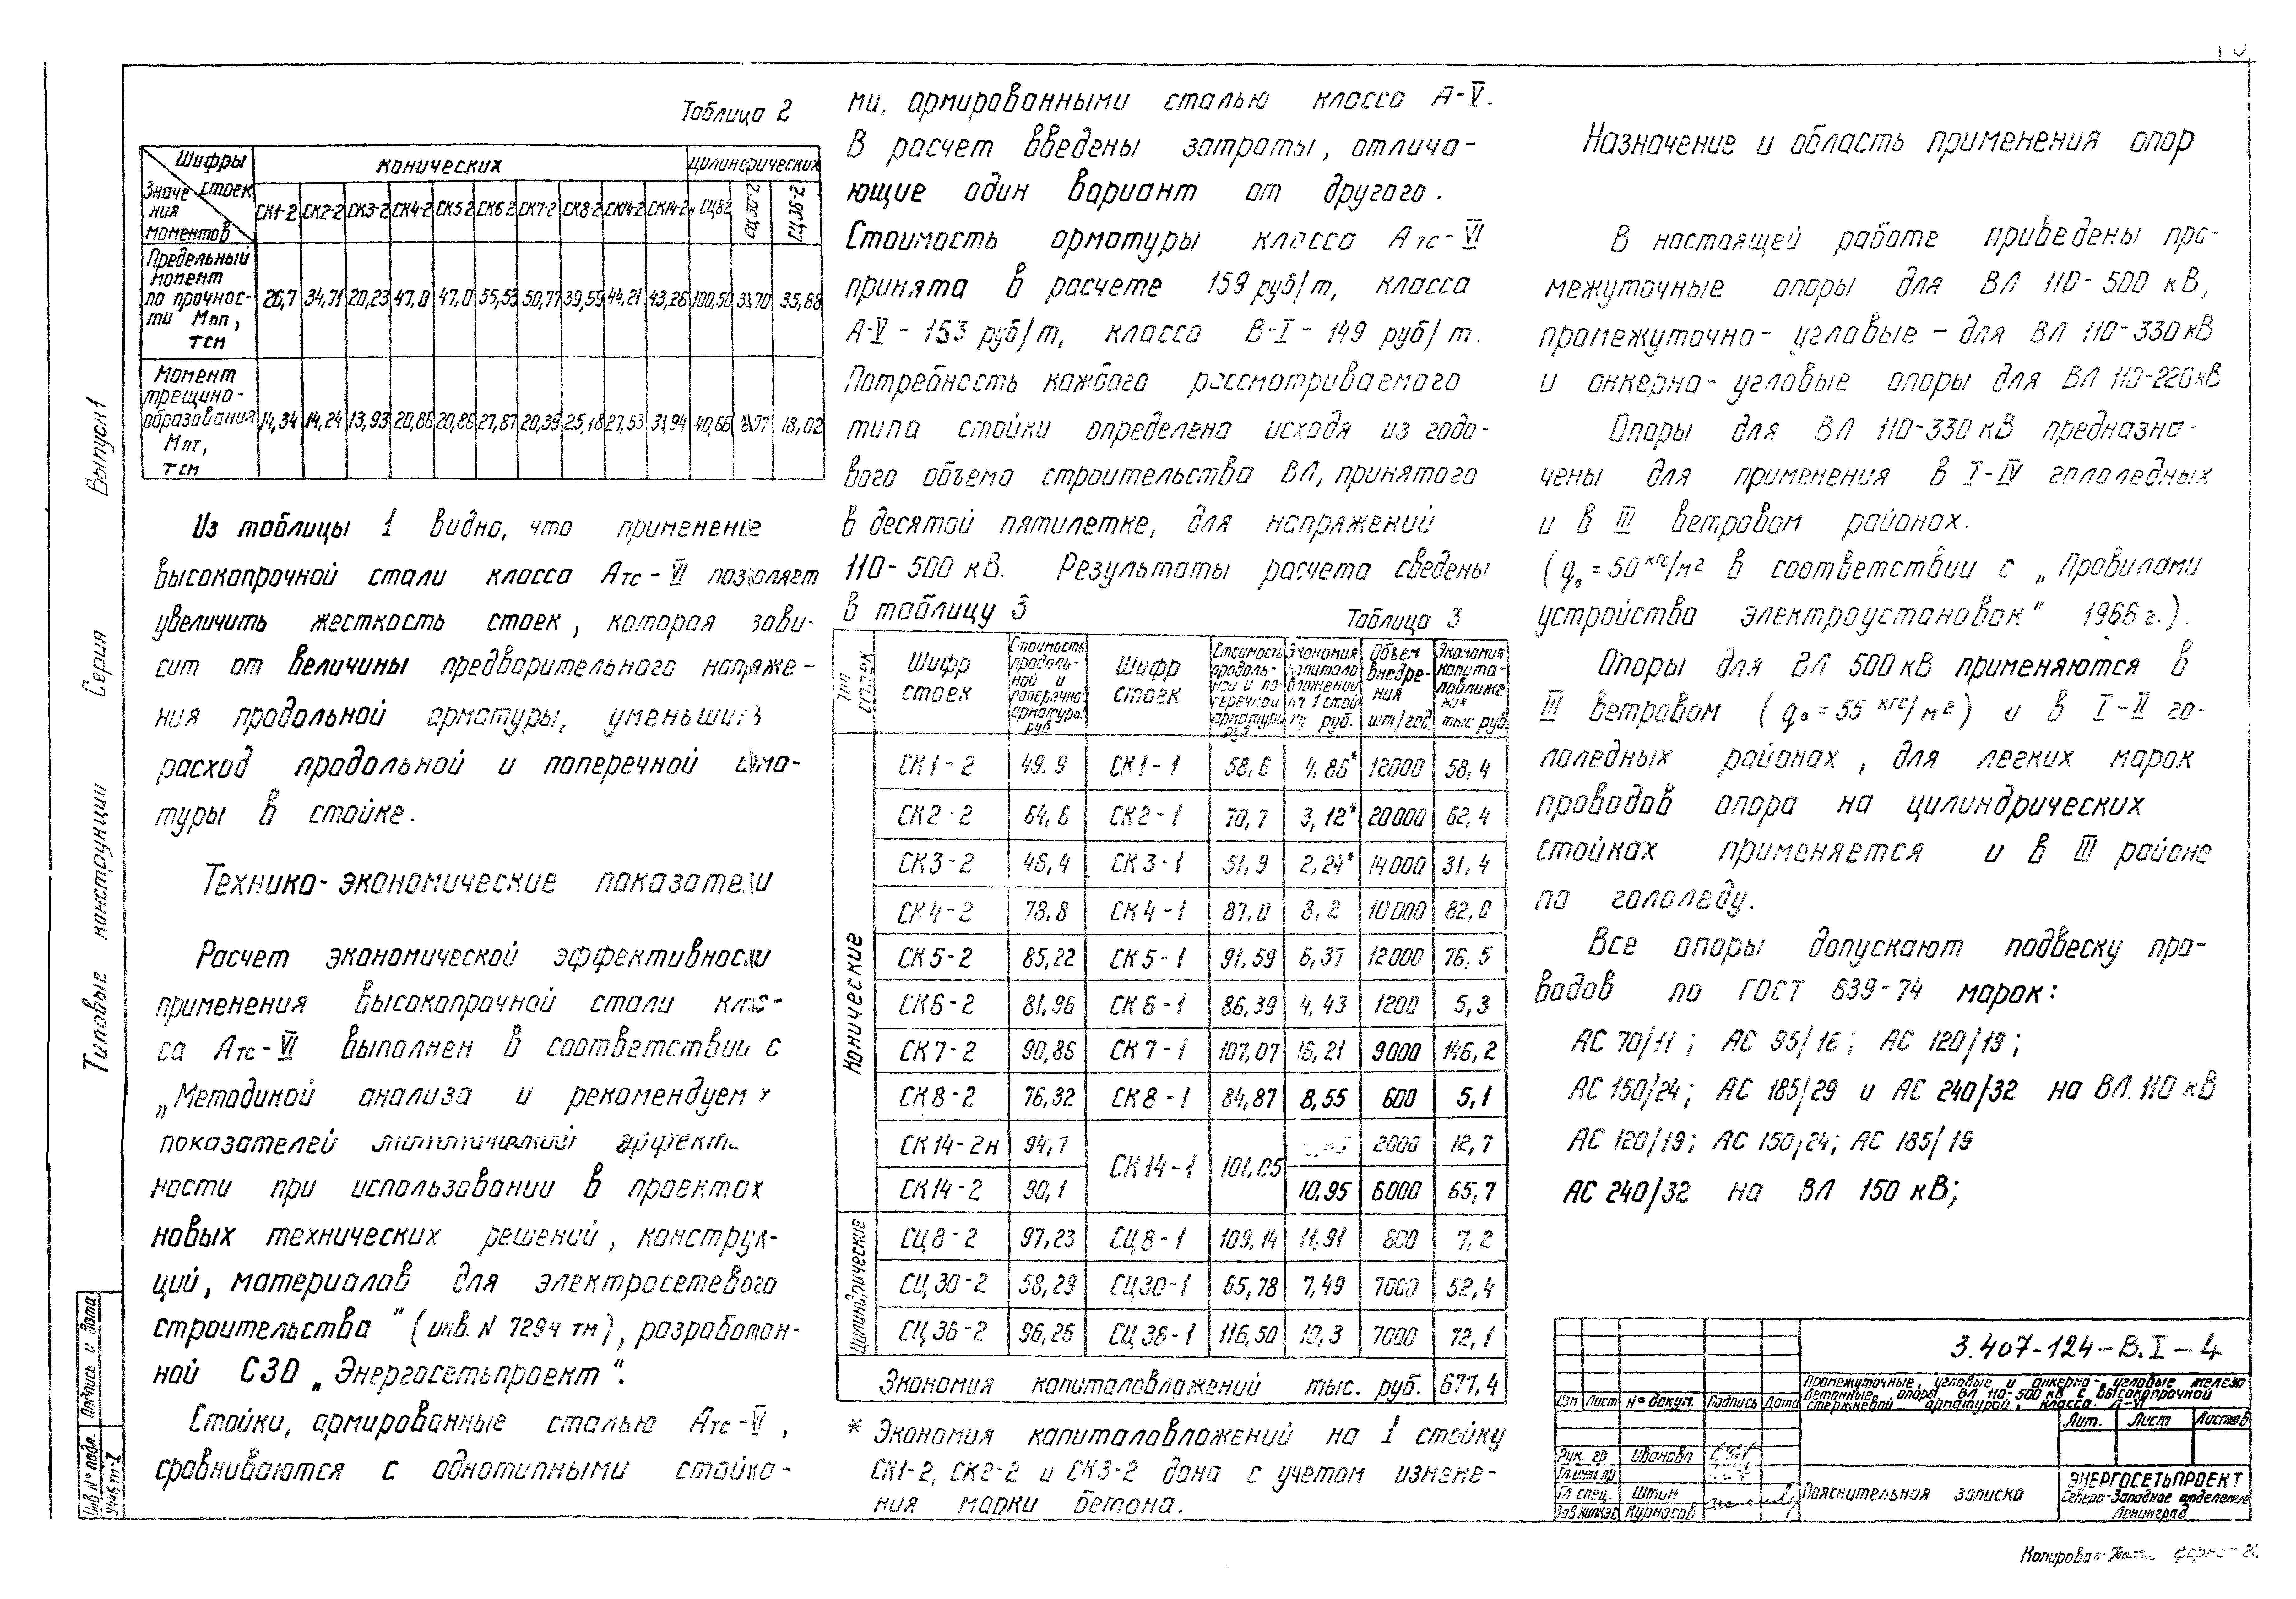 Таблица 2
Шифры стоек
Значения моментов
конических
цилиндрических
СК1-2 СК2-2 СК3-2 СК4-2 СК5 2 СК6 2 СК7-2 СК8-2 СК14-2 СК14-2н СЦ8-2 СЦ30-2 СЦ36-2
Предельный момент по прочнос-ти Мпп, тсм
26,7 34,71 20,23 47,0 47,0 55,53 50,77 39,59 44,21 43,26 100,50 35,88
Момент трещино-образования Мпт, тсм
14,34 14,24 13,93 20,86 20,86 27,87 20,39 25,18 27,53 31,94 40,66 18,02
Из таблицы 1 видно, что применение
высокопрочной стали класса Атс-VI позволяет
увеличить жесткость стоек, которая зави-
сит от величины предварительного напряже-
ния продольной арматуры, уменьшить
расход продольной и поперечной арма-
туры в стойке.
Технико-экономические показатели
Расчет экономической эффективности
применения высокопрочной стали клас-
са Атс-VI выполнен в соответствии с
„Методикой анализа и рекомендуемых
показателей эффекти
ности при использовании в проектах
новых технических решений, конструк-
ций, материалов для электросетевого
строительства" (инв. N 7294 тм), разработан-
ной СЗО „Энергосетьпроект".
Стойки, армированные сталью Атс-VI,
сравниваются с однотипными стойка-
ми, армированными сталью класса А-V.
В расчет введены затраты, отлича-
ющие один вариант от другого.
Стоимость арматуры класса Атс-VI
принята в расчете 159 руб/т, класса
А-V - 153 руб/т, класса В-I - 149 руб/т.
Потребность каждого рассматриваемого
типа стойки определена исходя из годо-
вого объема строительства ВЛ, принятого
в десятой пятилетке, для напряжений
110-500 кВ. Результаты расчета сведены
в таблицу 3
Таблица 3
Тип стоек
Шифр стоек
Стоимость продоль-ной и поперечной арматуры руб
Шифр стоек
Стоимость продоль-ной и по-перечной арматуры руб
Экономия капитало вложений на 1 стойку руб.
Объем внедре-ния шт/год
Экономия капита-ловложе ния тыс руб.
Конические
СК1-2 49.9 СК1-1 58,6 4,86* 12000 58,4
СК2-2 64,6 СК2-1 70,7 3,12* 20000 62,4
СК3-2 46,4 СК3-1 51,9 2,24* 14000 31,4
СК4-2 78,8 СК4-1 87,0 8,2 10000 82,0
СК5-2 85,22 СК5-1 91,59 6,37 12000 76,5
СК6-2 81,96 СК6-1 86,39 4,43 1200 5,3
СК7-2 90,86 СК7-1 107,07 16,21 9000 146,2
СК8-2 76,32 СК8-1 84,87 8,55 600 5,1
СК14-2н 94,7 СК14-1 101,05 2000 12,7
СК14-2 90,1 10,95 6000 65,7
Цилиндрические
СЦ8-2 97,23 СЦ8-1 109,14 11,91 600 7,2
СЦ30-2 58,29 СЦ30-1 65,78 7,49 7000 52,4
СЦ36-2 96,26 СЦ36-1 116,50 10,3 7000 72,1
Экономия капиталовложений тыс. руб. 677,4
* Экономия капиталовложений на 1 стойку
СК1-2, СК2-2 и СК3-2 дана с учетом измене-
ния марки бетона.
Назначение и область применения опор
В настоящей работе приведены про-
межуточные опоры для ВЛ 110-500 кВ,
промежуточно-угловые - для ВЛ 110-330 кВ
и анкерно-угловые опоры для ВЛ 110-220кВ
Опоры для ВЛ 110-330 кВ предназна-
чены для применения в I-IV гололедных
и в III ветровом районах.
(q₀=50 кгс/м² в соответствии с „Правилами
устройства электроустановок" 1966г.).
Опоры для ВЛ 500кВ применяются в
III ветровом (q₀=55 кгс/м²) и в I-II го-
лоледных районах, для легких марок
проводов опора на цилиндрических
стойках применяется и в III районе
по гололеду.
Все опоры допускают подвеску про-
водов по ГОСТ 839-74 марок:
АС 70/11; АС 95/16; АС 120/19;
АС 150/24; АС 185/29 и АС 240/32 на ВЛ. 110 кВ
АС 120/19; АС 150/24; АС 185/19
АС 240/32 на ВЛ 150 кВ;
Типовые конструкции Серия Выпуск 1
Инв № подл. Подпись и дата
9146 тм-I
3.407-124-В.I-4
Промежуточные, угловые и анкерно-угловые железо
бетонные опоры ВЛ 110-500 кВ с высокопрочной
стержневой арматурой, класса А-VI
Изм Лист № докум. Подпись Дата
Лит. Лист Листов
Рук. гр Иванова
Гл инж пр
Гл спец. Штин
Зав НИЛКЭС Курносов
Пояснительная записка
ЭНЕРГОСЕТЬПРОЕКТ
Северо-Западное отделение
Ленинград
Копировал- форма-